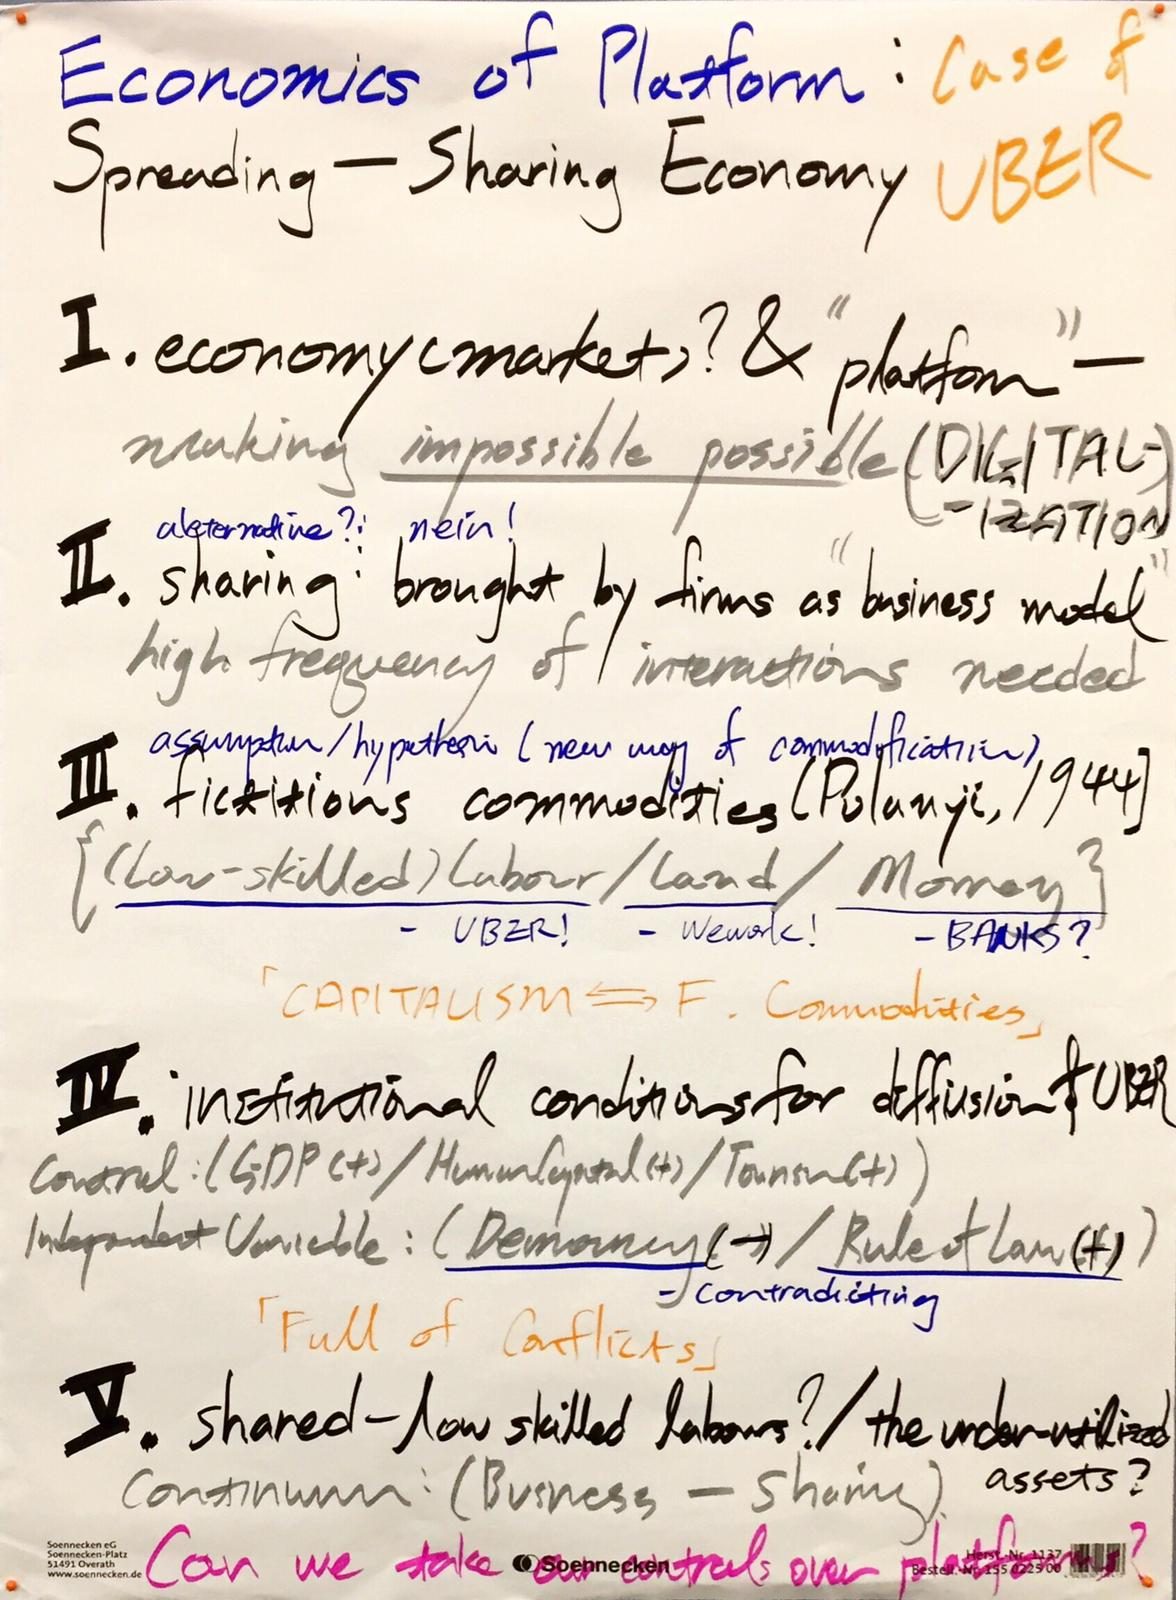 Economics of Platform : Case of
Spreading — Sharing Economy UBER
I. economy (market)? & "platform" —
making impossible possible (DIGITAL-
-IZATION)
alternative?: nein!
II. sharing: brought by firms as "business model"
high frequency of interactions needed
assumption/hypothesis (new way of commodification)
III. fictitious commodities (Polanyi, 1944]
{(Low-skilled) Labour / Land / Money}
- UBER! - Wework! - BANKS?
「CAPITALISM ⇆ F. Commodities」
IV. institutional conditions for diffusion of UBER
Control : (GDP (+) / Human Capital (+) / Tourism (+))
Independent Variable : (Democracy (-) / Rule of Law (+))
- contradicting
「Full of Conflicts」
V. shared - low skilled labours? / the under-utilized
assets?
Continuum : (Business — Sharing)
Can we take our controls over platforms?
Soennecken eG
Soennecken-Platz
51491 Overath
www.soennecken.de
Soennecken
Herst.-Nr. 1137
Bestell.-Nr. 155 0225 00